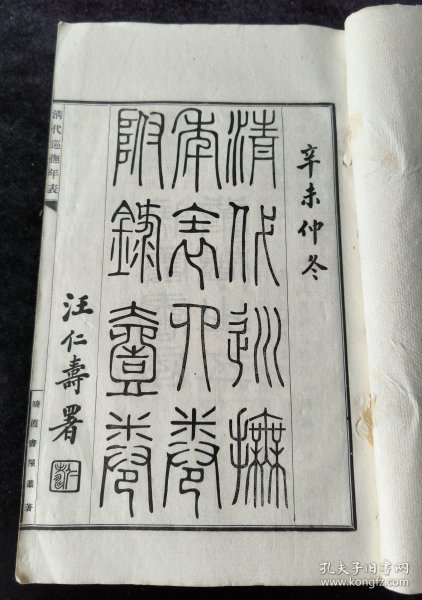 辛未仲冬
清代巡撫
年表六卷
附錄壹卷
汪仁壽署
清代巡撫年表
曉霞書屋叢著
孔夫子旧书网
www.kongfz.com